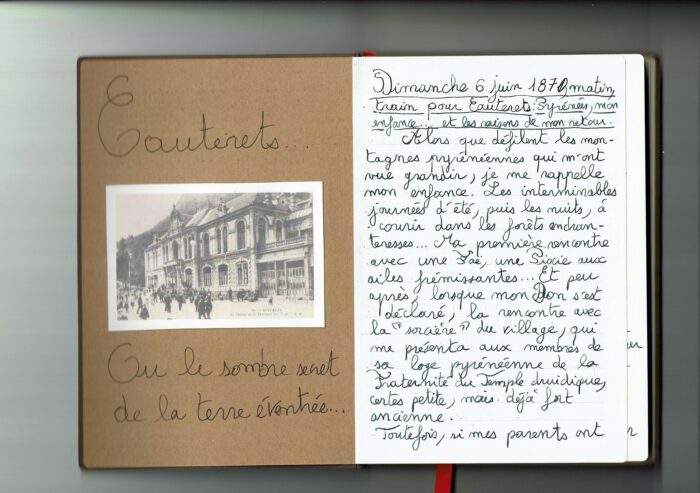 Cauterets...
CAUTERETS
Ou le sombre secret
de la terre éventrée...
Dimanche 6 juin 1870, matin,
train pour Cauterets: Pyrénées, mon
enfance... et les raisons de mon retour.
Alors que défilent les mon-
tagnes pyrénéennes qui m'ont
vue grandir, je me rappelle
mon enfance. Les interminables
journées d'été, puis les nuits, à
courir dans les forêts enchan-
teresses... Ma première rencontre
avec une Fae, une Pixie aux
ailes frémissantes... Et peu
après, lorsque mon Don s'est
déclaré, la rencontre avec
la "sorcière" du village, qui
me présenta aux membres de
sa loge pyrénéenne de la
Fraternité du Temple druidique,
certes petite, mais déjà fort
ancienne...
Toutefois, si mes parents ont